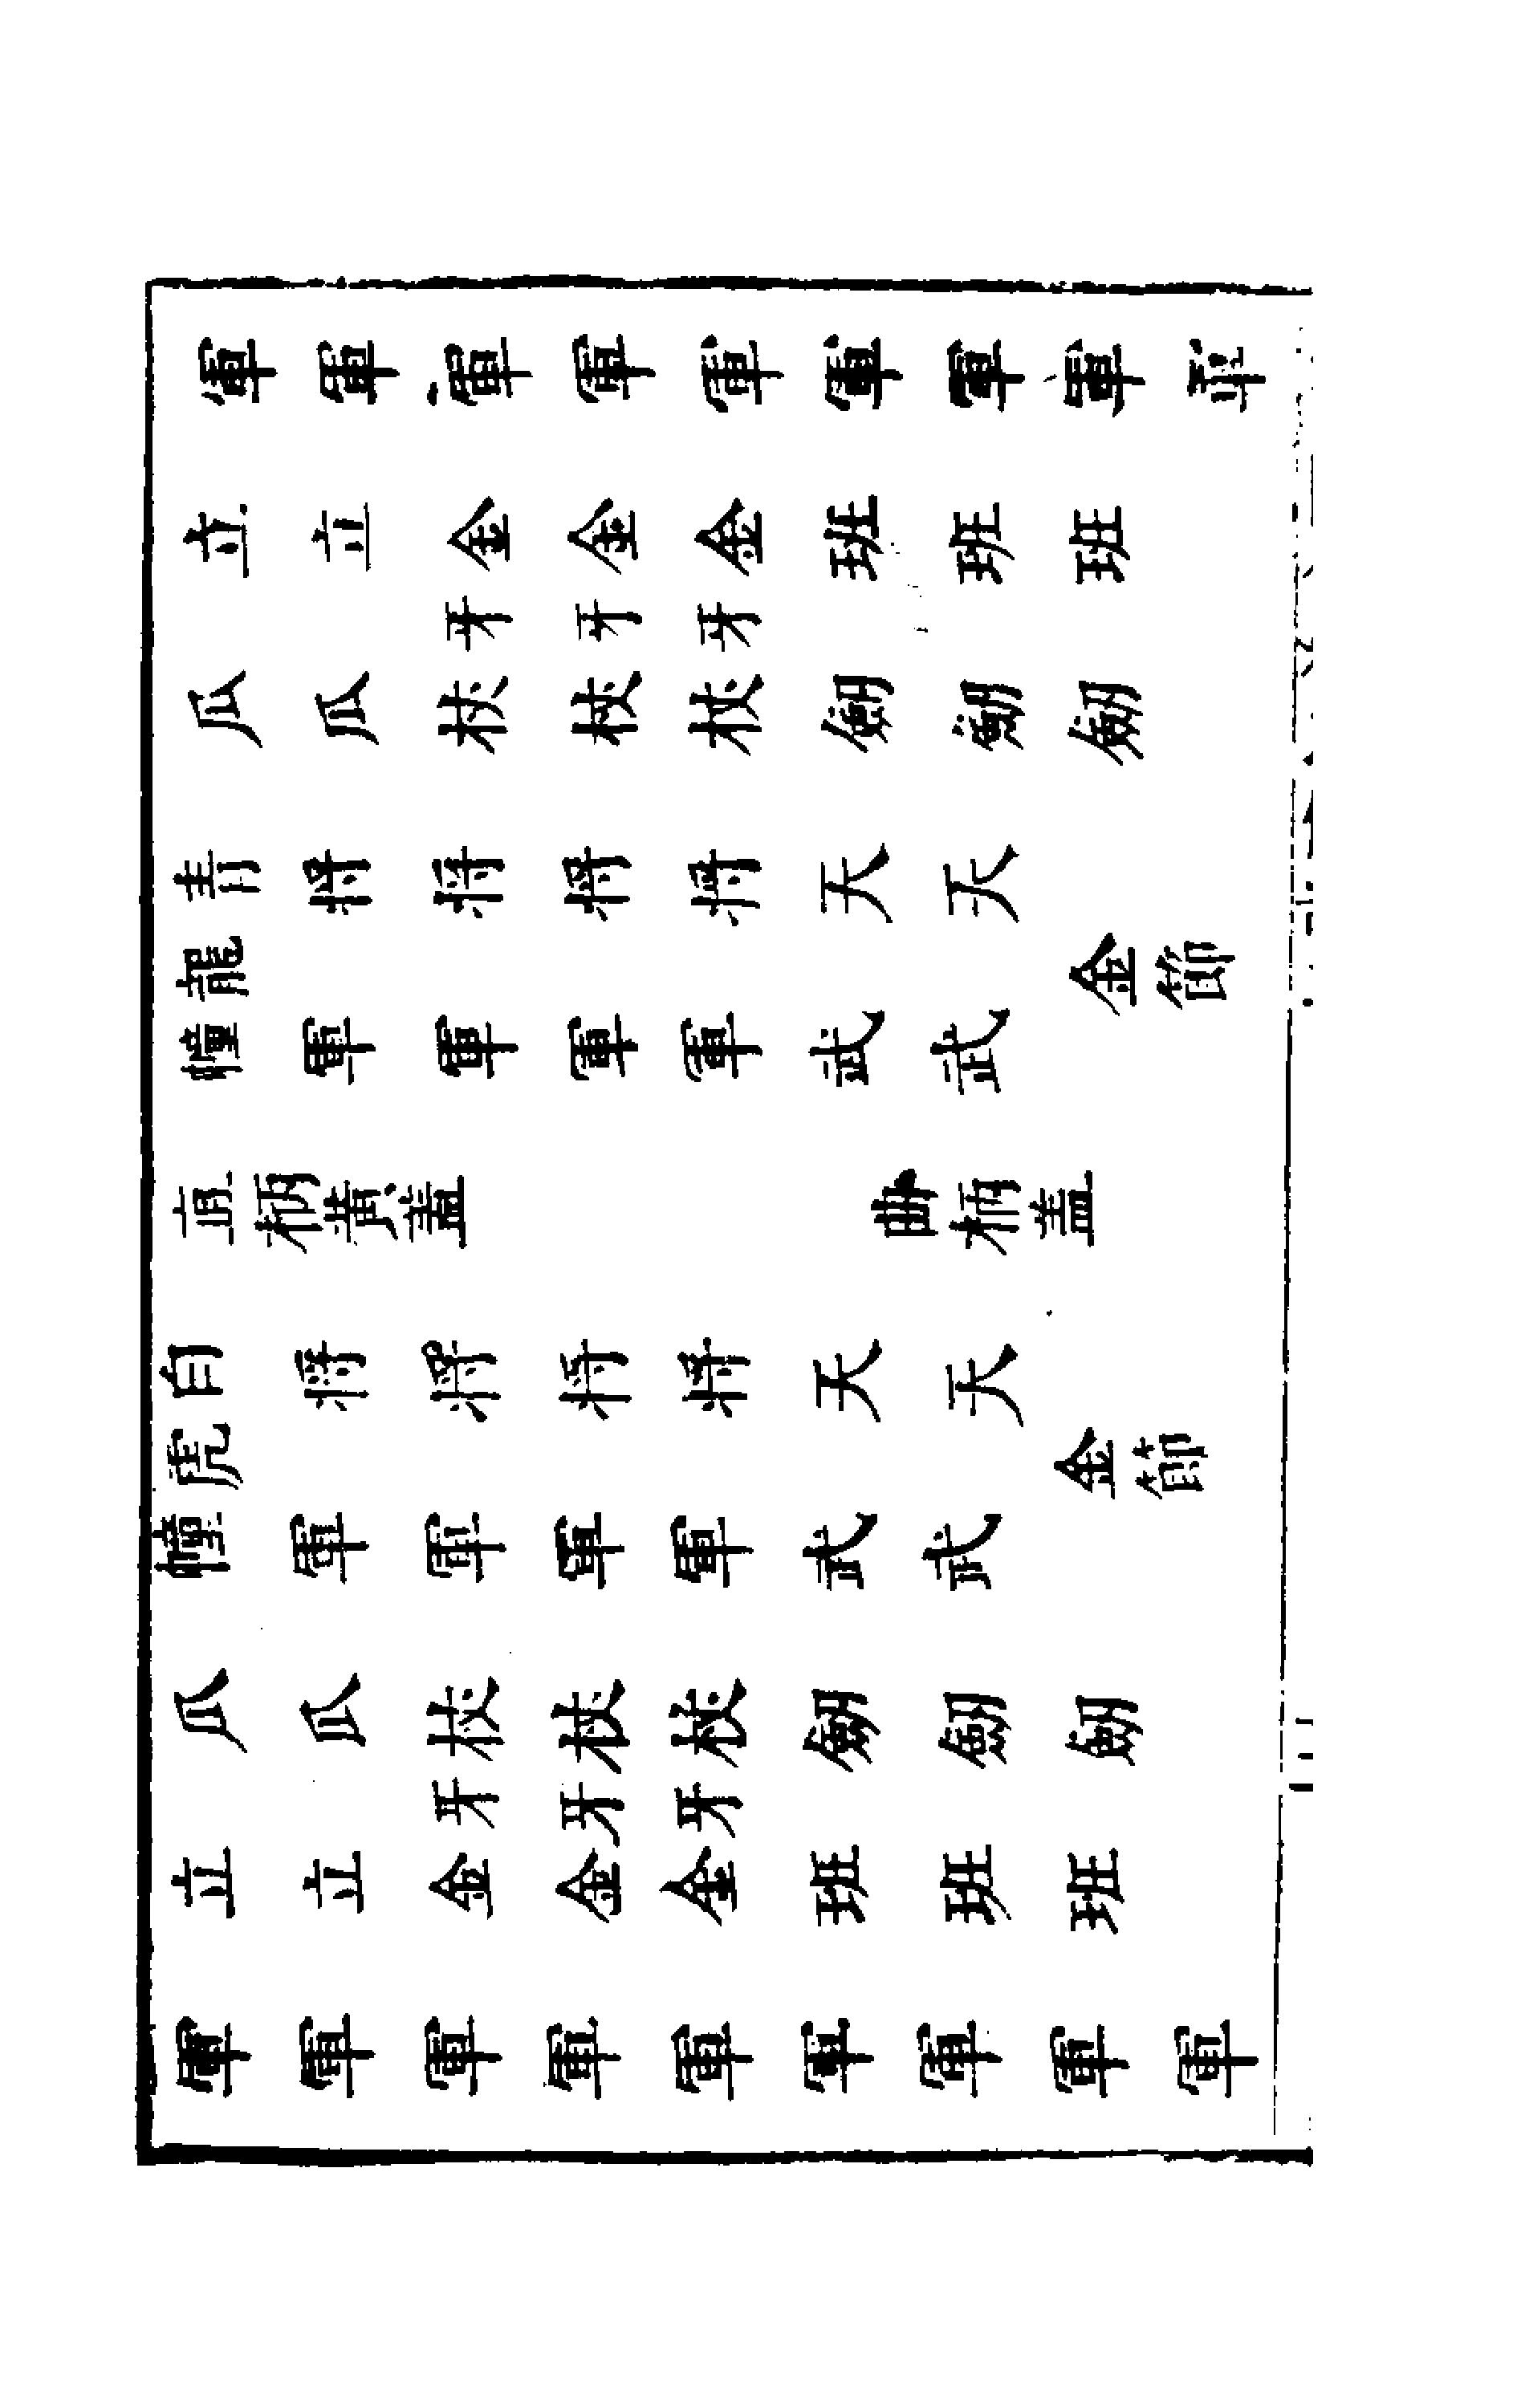 軍軍軍軍軍軍軍軍軍
立立金金金班班班
牙牙牙
瓜瓜杖杖杖劒劒劒
青將將將將天天
龍金節
幢軍軍軍軍武武
直柄黃蓋曲柄蓋
白將將將將天天
虎金節
幢軍軍軍軍武武
瓜瓜杖杖杖劒劒劒
牙牙牙
立立金金金班班班
軍軍軍軍軍軍軍軍軍